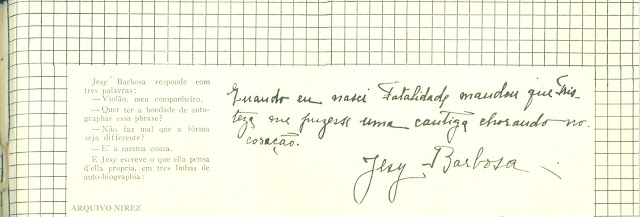 Jesy Barbosa responde com
tres palavras:
— Violão, meu companheiro.
— Quer ter a bondade de auto-
graphar essa phrase?
— Não faz mal que a fórma
seja differente?
— E' a mesma cousa.
E Jesy escreve o que ella pensa
d'ella propria, em tres linhas de
auto-biographia:
Quando eu nasci Fatalidade mandou que Tris-
teza me puzesse uma cantiga chorando no
coração.
Jesy Barbosa
ARQUIVO NIREZ